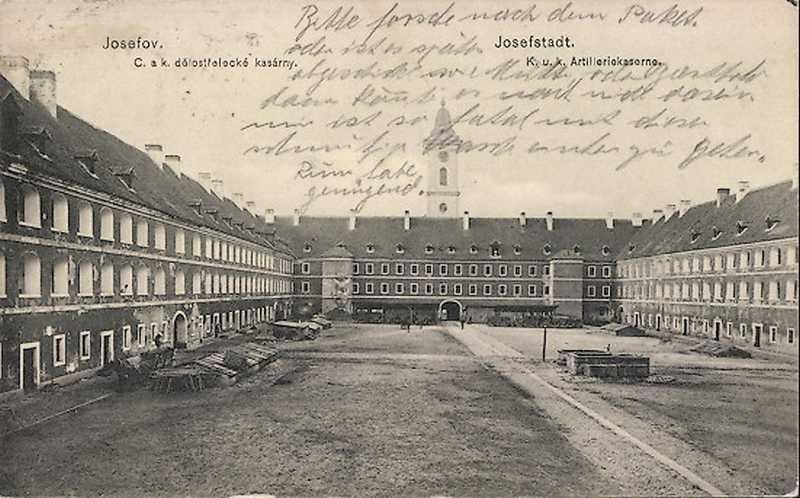 Josefov.
C. a k. dělostřelecké kasárny.
Josefstadt.
K. u. k. Artilleriekaserne.
Bitte forsche nach dem Paket.
oder ist es später
abgeschickt wie Mutti oder
dann könnte es noch nicht da sein
mir ist so fatal mit dieser
schmutzigen Wäsche zu gehen.
Rum habe
genügend.